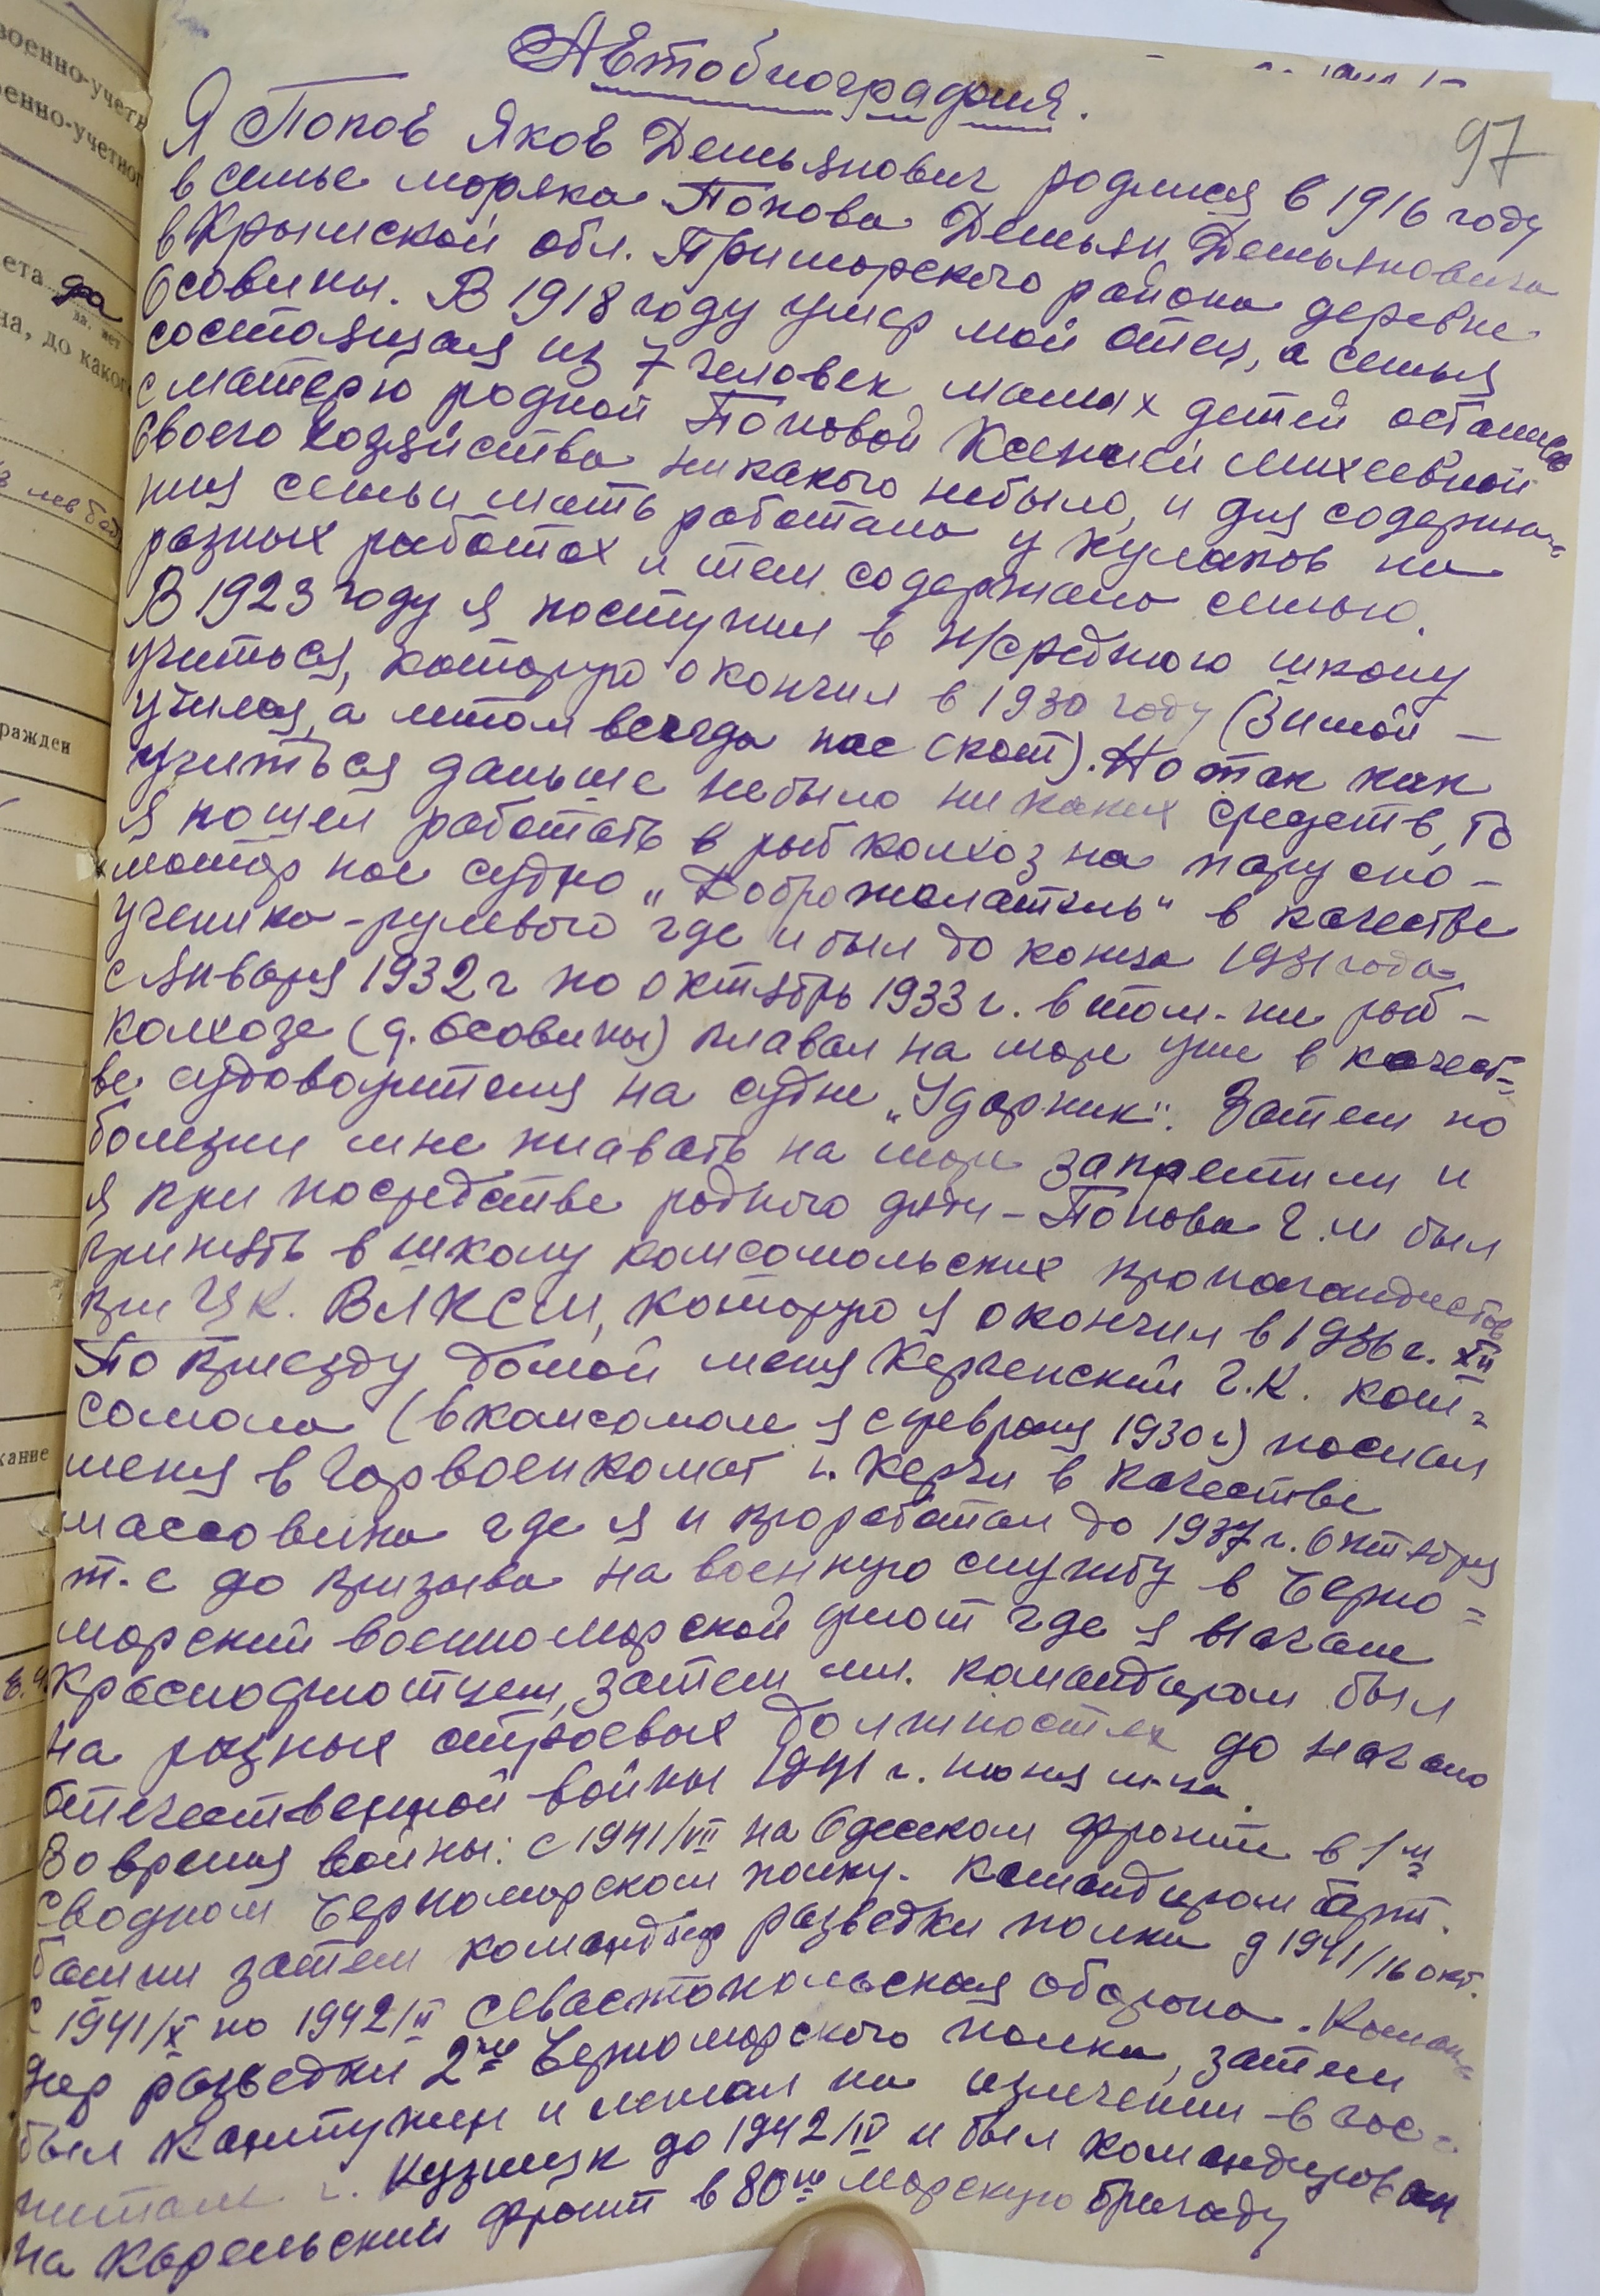 97
Автобиография.
Я Попов Яков Демьянович родился в 1916 году
в семье моряка Попова Демьян Демьяновича
в Крымской обл. Приморского района деревне
Осовины. В 1918 году умер мой отец, а семья
состоящая из 7 человек малых детей осталась
с матерю родной Поповой Ксенией Михеевной
своего хозяйства никакого небыло, и для содержа-
ния семьи мать работала у кулаков на
разных работах и тем содержала семью.
В 1923 году я поступил в н/среднюю школу
учиться, которую окончил в 1930 году (Зимой -
учился, а летом всегда пас скот). Но так как
учиться дальше небыло ни каких средств, то
я пошел работать в рыбколхоз на парусно-
моторное судно „Доброжелатель" в качестве
ученика-рулевого где и был до конца 1931 года.
с января 1932 г по октябрь 1933 г. в том-же рыб-
колхозе (д. Осовины) плавал на море уже в качест-
ве судоводителя на судне „Ударник". Затем по
болезни мне плавать на море запретили и
я при посредстве родного дяди - Попова Г.М был
принять в школу комсомольских пропагандистов
при ЦК. ВЛКСМ, которую я окончил в 1936 г. XII
По приезду домой меня Керченский Г.К. ком-
сомола (в комсомоле я с февраля 1930 г) послал
меня в Горвоенкомат г. Керчи в качестве
массовика где я и проработал до 1937 г. Октября
т.е до призыва на военную службу в Черно-
морский военноморской флот где я вначале
краснофлотцем, затем мл. командиром был
на разных строевых должностях до начала
отечественной войны 1941 г. июня м-ца.
Во время войны: с 1941/VII на Одесском фронте в 1м
сводном Черноморском полку. Командиром
башни затем командир разведки полка д 1941/16 окт.
с 1941/X по 1942/II Севастопольская оборона. Коман-
дир разведки 2го Черноморского полка, затем
был контужен и лежал на излечении в гос-
питале г. Кузнецк до 1942/IV и был командирован
на Карельский фронт в 80ю морскую бригаду
военно-учетн
военно-учетног
ета да
да, нет
на, до каког
ражден
кание